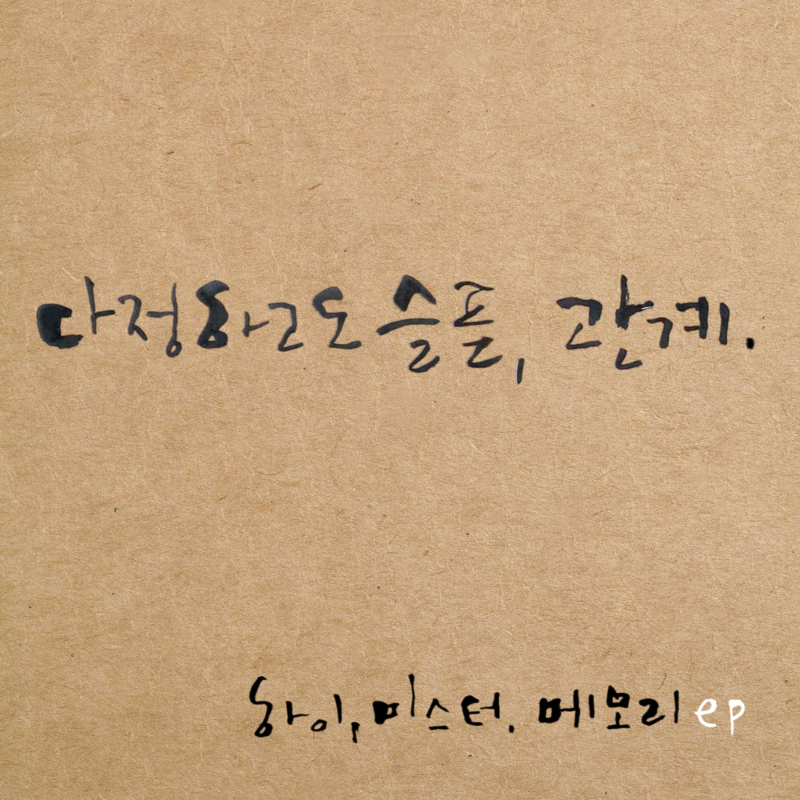 다정하고도 슬픔, 관계.
하이, 미스터. 메모리 ep